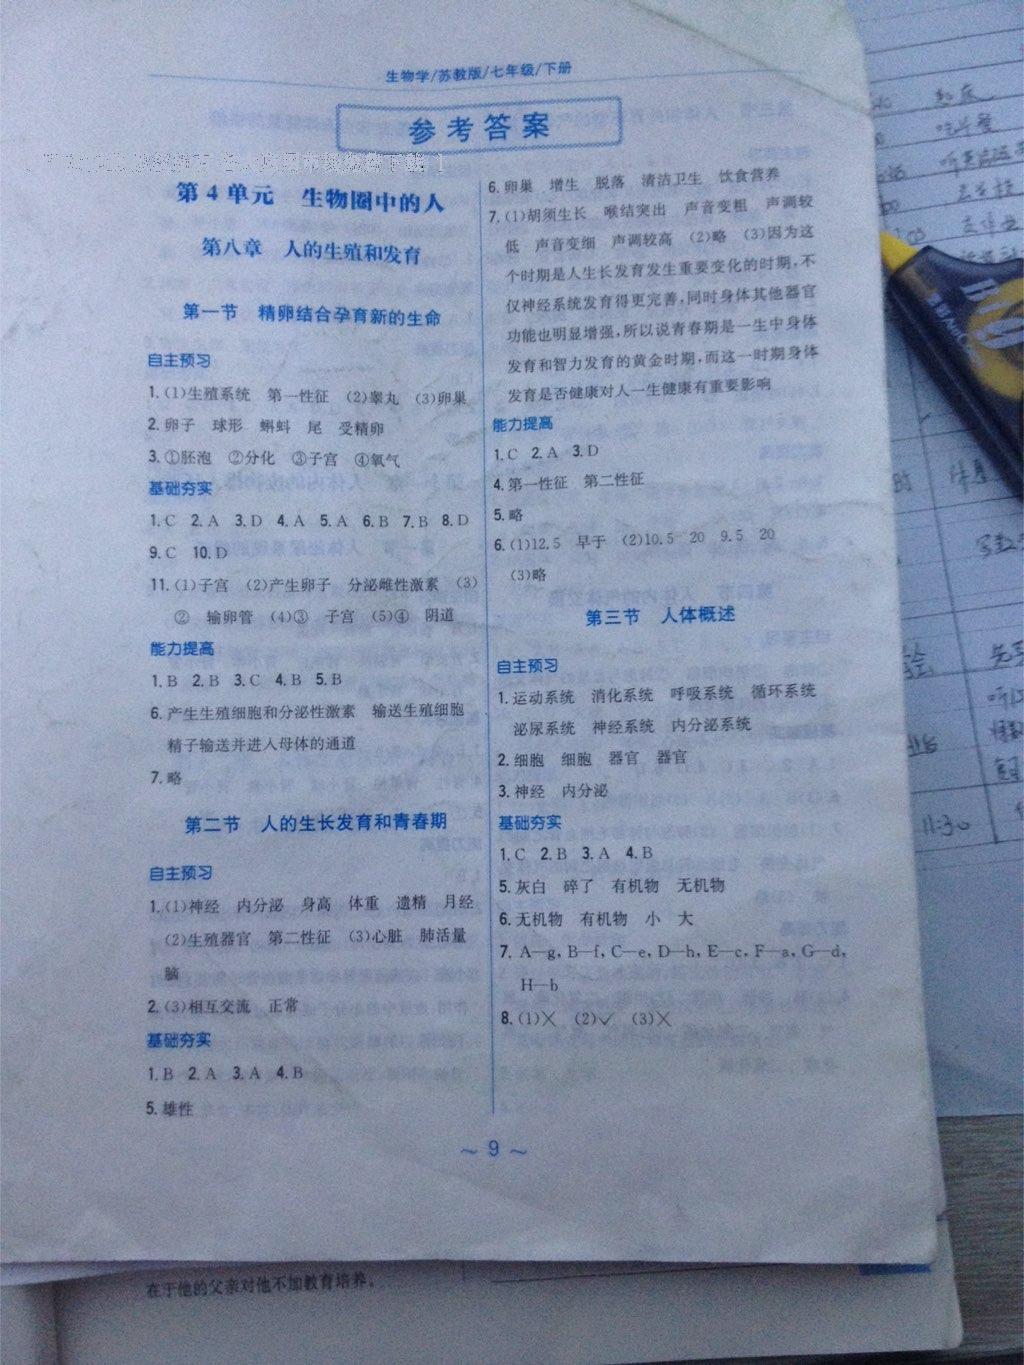 生物学/苏教版/七年级/下册
参考答案
第4单元 生物圈中的人
第八章 人的生殖和发育
第一节 精卵结合孕育新的生命
自主预习
1.(1)生殖系统 第一性征 (2)睾丸 (3)卵巢
2.卵子 球形 蝌蚪 尾 受精卵
3.①胚泡 ②分化 ③子宫 ④氧气
基础夯实
1.C 2.A 3.D 4.A 5.A 6.B 7.B 8.D
9.C 10.D
11.(1)子宫 (2)产生卵子 分泌雌性激素 (3)
② 输卵管 (4)③ 子宫 (5)④ 阴道
能力提高
1.B 2.B 3.C 4.B 5.B
6.产生生殖细胞和分泌性激素 输送生殖细胞
精子输送并进入母体的通道
7.略
第二节 人的生长发育和青春期
自主预习
1.(1)神经 内分泌 身高 体重 遗精 月经
(2)生殖器官 第二性征 (3)心脏 肺活量
脑
2.(3)相互交流 正常
基础夯实
1.B 2.A 3.A 4.B
5.雄性
6.卵巢 增生 脱落 清洁卫生 饮食营养
7.(1)胡须生长 喉结突出 声音变粗 声调较
低 声音变细 声调较高 (2)略 (3)因为这
个时期是人生长发育发生重要变化的时期,不
仅神经系统发育得更完善,同时身体其他器官
功能也明显增强,所以说青春期是一生中身体
发育和智力发育的黄金时期,而这一时期身体
发育是否健康对人一生健康有重要影响
能力提高
1.C 2.A 3.D
4.第一性征 第二性征
5.略
6.(1)12.5 早于 (2)10.5 20 9.5 20
(3)略
第三节 人体概述
自主预习
1.运动系统 消化系统 呼吸系统 循环系统
泌尿系统 神经系统 内分泌系统
2.细胞 细胞 器官 器官
3.神经 内分泌
基础夯实
1.C 2.B 3.A 4.B
5.灰白 碎了 有机物 无机物
6.无机物 有机物 小 大
7.A—g,B—f,C—e,D—h,E—c,F—a,G—d,
H—b
8.(1)╳ (2)✓ (3)╳
~ 9 ~
在于他的父亲对他不加教育培养。
起床
吃早餐
11:30